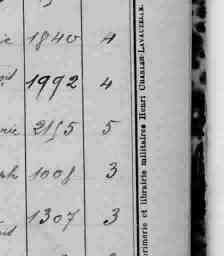 1840 4
1992 4
2155 5
1008 3
1307 3
primerie et librairie militaires Henri CHARLES-LAVAUZELLE.